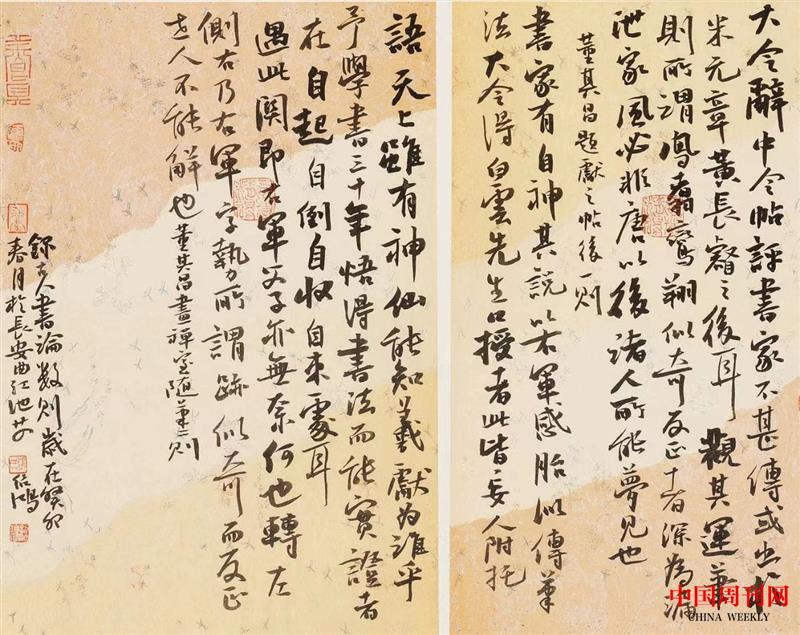 大令辭中令帖評書家不甚傳或出於
米元章黃長睿之後耳觀其運筆
則所謂鳳翥鸞翔似奇反正者深為漏
泄家風必非唐以後諸人所能夢見也
董其昌題獻之帖後一則
書家有自神其說以右軍感胎仙傳筆
法大令得白雲先生口授者此皆妄人附托
語天上雖有神仙能知羲獻為誰乎
予學書三十年悟得書法而能實證者
在自起自倒自收自束處耳
過此關即右軍父子亦無奈何也轉左
側右乃右軍字勢所謂跡似奇而反正
世人不能解也董其昌畫禪室隨筆二則
錄古人書論數則歲在癸卯
春月於長安曲江池
中国周刊网
CHINA WEEKLY